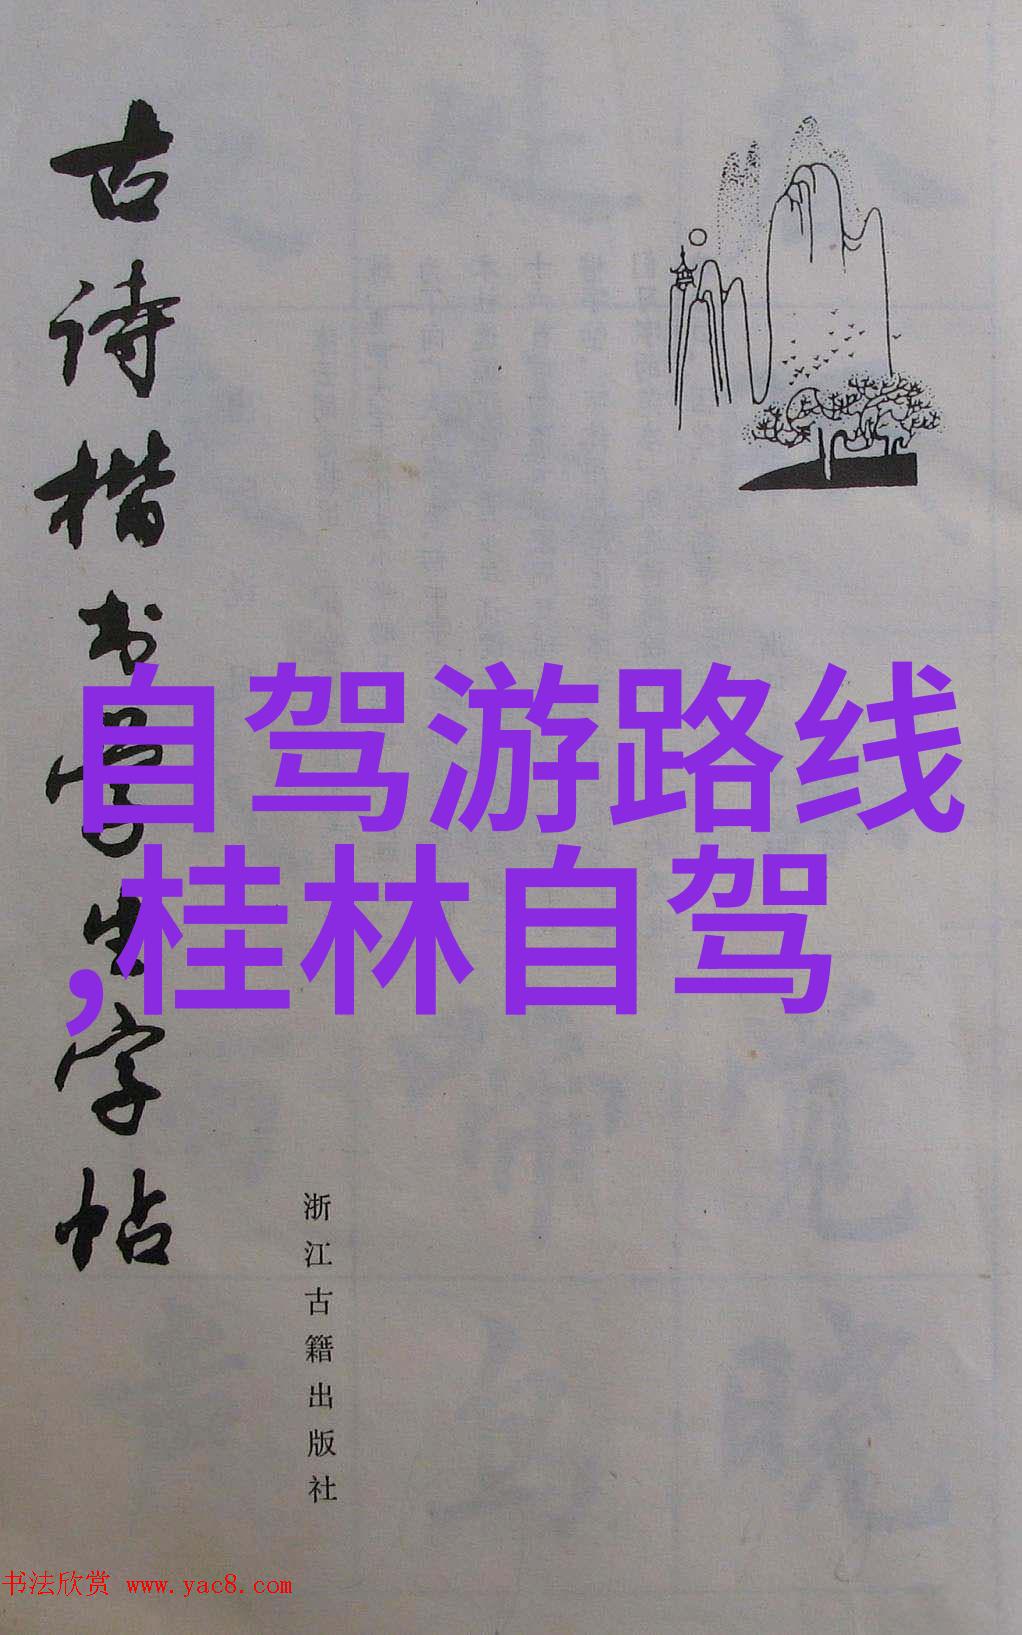 古诗楷书学生字帖
自驾游路线
,桂林自驾
浙江古籍出版社
书法欣赏 www.yac8.com